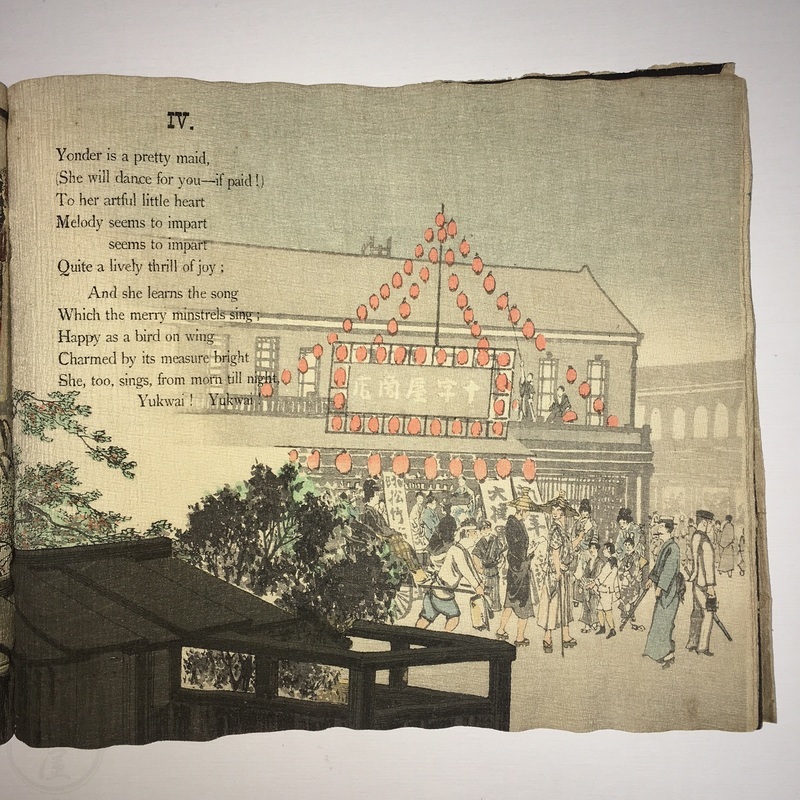 IV.
Yonder is a pretty maid,
(She will dance for you—if paid!)
To her artful little heart
Melody seems to impart
seems to impart
Quite a lively thrill of joy ;
And she learns the song
Which the merry minstrels sing ;
Happy as a bird on wing
Charmed by its measure bright
She, too, sings, from morn till night,
Yukwai ! Yukwai !
十字屋商店
松竹
大